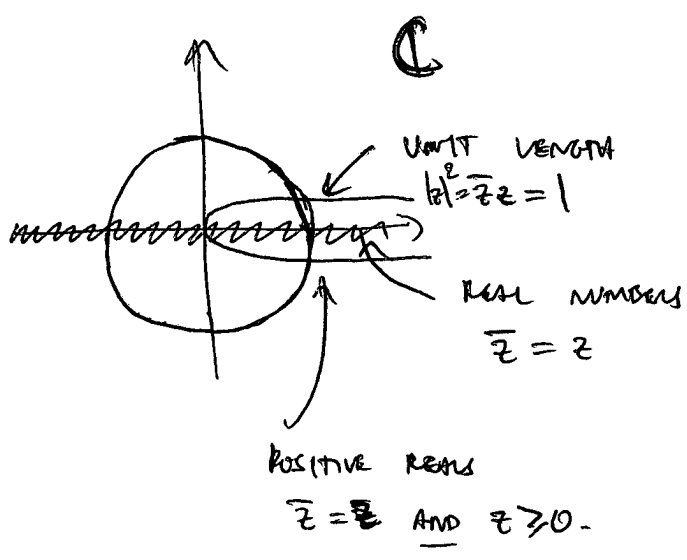 ℂ
UNIT LENGTH
|z|² = z̄z = 1
REAL NUMBERS
z̄ = z
POSITIVE REALS
z̄ = z AND z ⩾ 0.